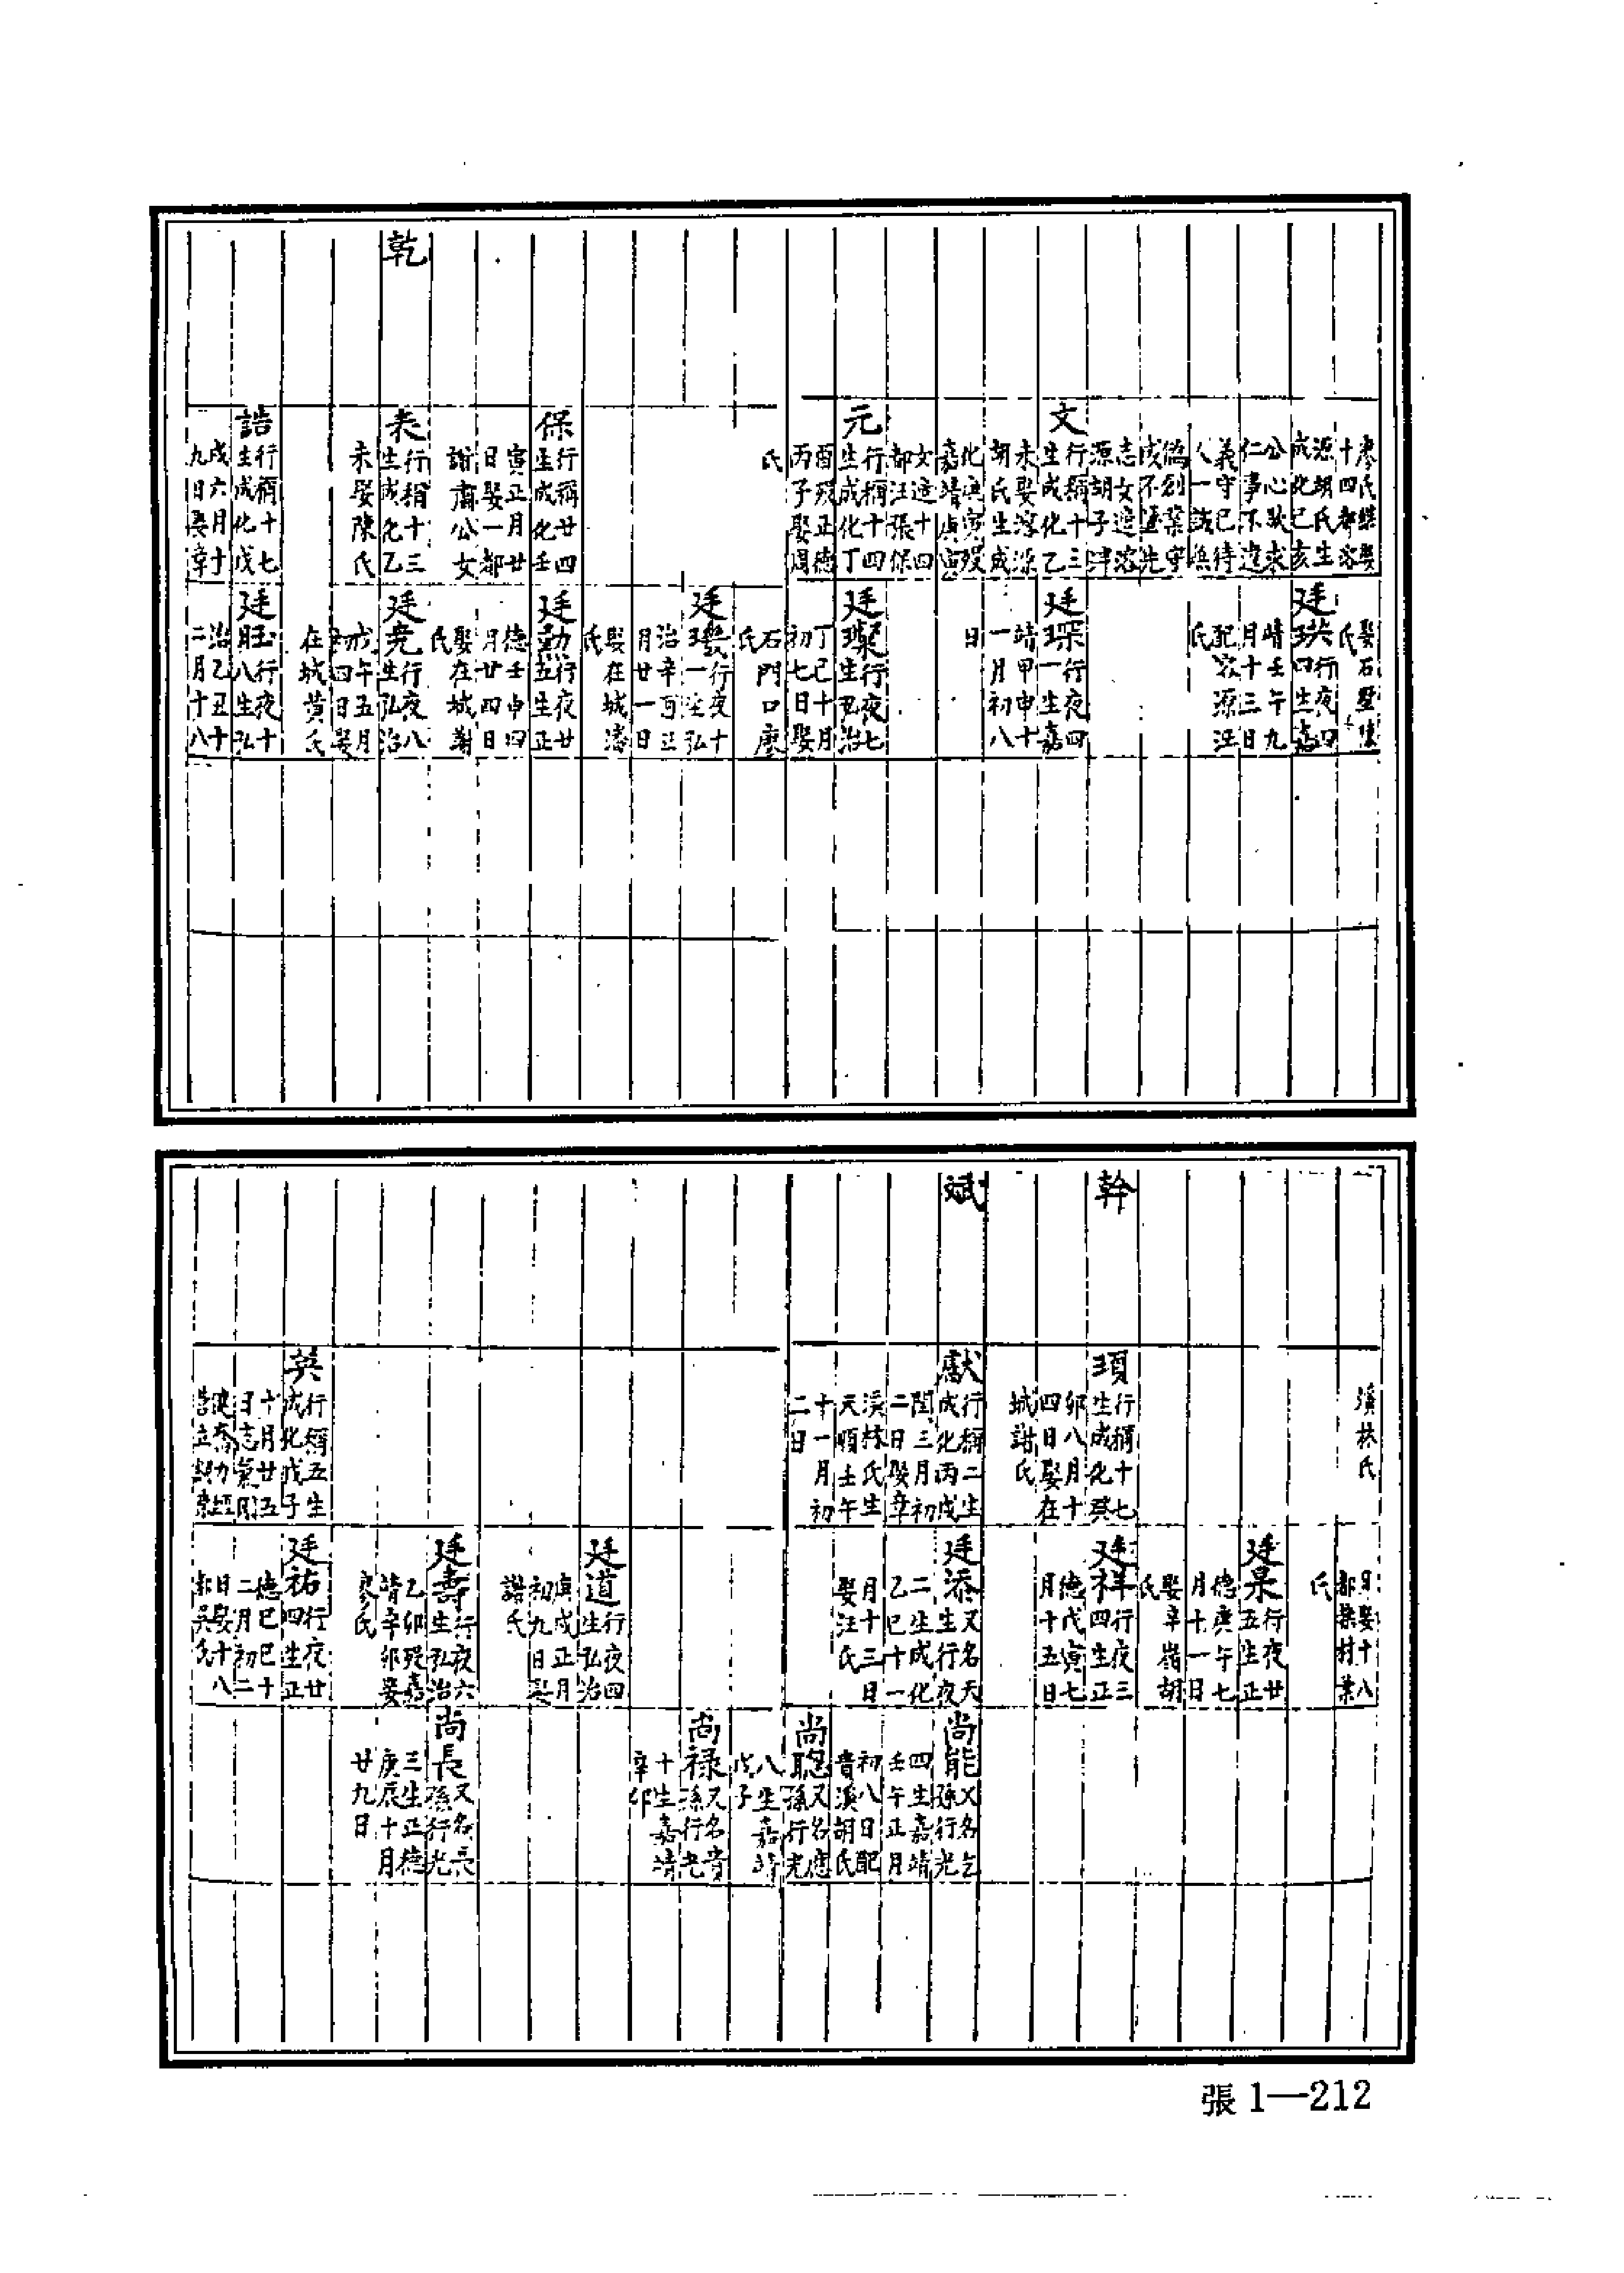 乾
廖氏継娶
十四都溶
源胡氏生
成化己亥
公心
仁事不違
義守己待
人一誠無
偽創業守
成不墜先
志女適溶
源胡子津
文
行稱十三
生成化乙
未娶溶源
胡氏生成
化庚寅歿
嘉靖庚寅
女適十四
都汪張保
元
行稱十四
生成化丁
酉歿正德
丙子娶周
氏
保
行稱廿四
生成化壬
寅正月廿
日娶一都
謝肅公女
表
行稱十三
生成化乙
未娶陳氏
誥
行稱十七
生成化戊
戌六月十
九日娶辛
娶石墅陳
氏
廷珙
行夜四
四生嘉
靖壬午九
月十三日
配容源汪
氏
廷琛
行夜四
一生嘉
靖甲申十
一月初八
日
廷璨
行夜七
生弘治
丁巳十月
初七日娶
石門口廖
氏
廷璣
行夜十
一生弘
治辛酉正
月廿一日
娶在城潘
氏
廷勲
行夜廿
五生正
德壬申四
月廿四日
娶在城謝
氏
廷尭
行夜八
生弘治
戊午五月
初四日娶
在城黄氏
廷旺
行夜十
八生弘
治乙丑十
二月十八
幹
斌
溪林氏
頊
行稱十七
生成化癸
卯八月十
四日娶在
城謝氏
獻
行稱二生
成化丙戌
閏三月初
二日娶章
溪林氏生
天順壬午
十一月初
二日
英
行稱五生
成化戊子
十月廿五
日志氣
日娶十八
都葉村葉
氏
廷杲
行夜廿
五生正
德庚午七
月十一日
娶辛嶺胡
氏
廷祥
行夜三
四生正
德戊寅七
月十五日
廷添
又名天
生行夜
二生成化
乙巳十一
月十三日
娶汪氏
廷道
行夜四
生弘治
庚戌正月
初九日娶
謝氏
廷壽
行夜六
生弘治
乙卯歿嘉
靖辛卯娶
廖氏
廷祐
行夜廿
四生正
德己巳十
二月初二
日娶十八
都吳氏
尚能
又名乞
孫行光
四生嘉靖
壬午正月
初八日配
晋溪胡氏
尚聰
又名應
孫行光
八生嘉靖
戊子
尚禄
又名貴
孫行光
十生嘉靖
辛卯
尚長
又名長
孫行光
三生正德
庚辰十月
廿九日
張1—212